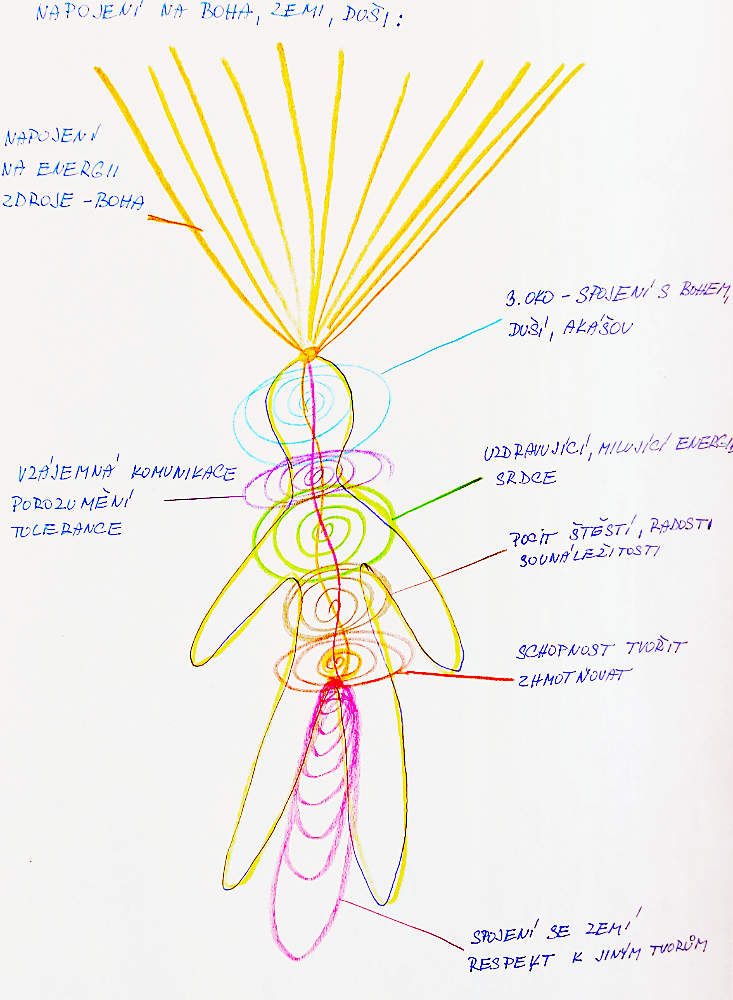 NAPOJENÍ NA BOHA, ZEMI, DUŠI:
NAPOJENÍ
NA ENERGII
ZDROJE - BOHA
3. OKO - SPOJENÍ S BOHEM,
DUŠÍ, AKÁŠOU
UZDRAVUJÍCÍ, MILUJÍCÍ ENERGIE
SRDCE
VZÁJEMNÁ KOMUNIKACE
POROZUMĚNÍ
TOLERANCE
POCIT ŠTĚSTÍ, RADOSTI
SOUNÁLEŽITOSTI
SCHOPNOST TVOŘIT
ZHMOTŇOVAT
SPOJENÍ SE ZEMÍ
RESPEKT K JINÝM TVORŮM